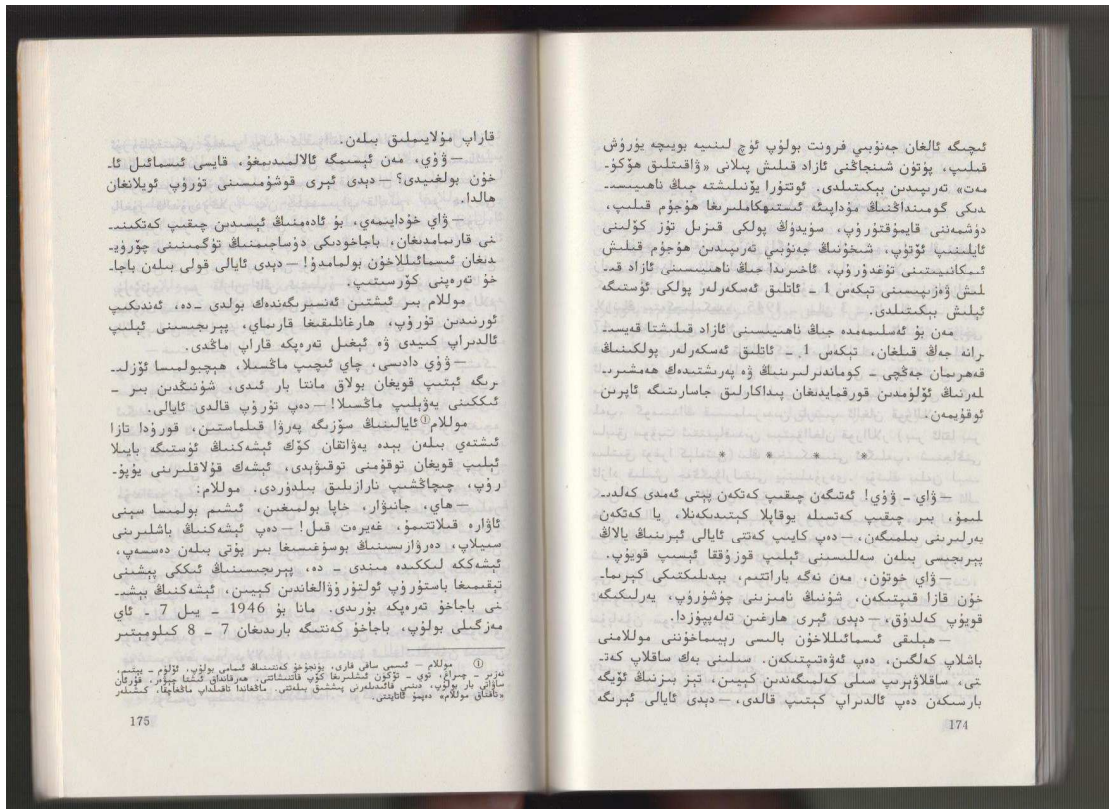 ئىچىگە ئالغان جەنۇبىي فرونت بولۇپ ئۈچ لىنىيە بويىچە يۈرۈش
قىلىپ، پۈتۈن شىنجاڭنى ئازاد قىلىش پىلانى «ۋاقىتلىق ھۆكۈ-
مەت» تەرىپىدىن بېكىتىلدى. ئوتتۇرا يۆنىلىشتە جىڭ ناھىيىسى-
دىكى گومىنداڭنىڭ مۇداپىئە ئىستىھكاملىرىغا ھۇجۇم قىلىپ،
دۈشمەننى قايمۇقتۇرۇپ، سۈيدۈڭ پولكى قىزىل تۈز كۆلىنى
ئايلىنىپ ئۆتۈپ، شىخۇنىڭ جەنۇبىي تەرىپىدىن ھۇجۇم قىلىش
ئىمكانىيىتىنى تۇغدۇرۇپ، ئاخىرىدا جىڭ ناھىيىسىنى ئازاد قى-
لىش ۋەزىپىسىنى تېكەس 1 ـ ئاتلىق ئەسكەرلەر پولكى ئۈستىگە
ئېلىش بېكىتىلدى.
مەن بۇ ئەسلىمەمدە جىڭ ناھىيىسىنى ئازاد قىلىشتا قەيسە-
رانە جەڭ قىلغان، تېكەس 1 ـ ئاتلىق ئەسكەرلەر پولكىنىڭ
قەھرىمان جەڭچى ـ كوماندىرلىرىنىڭ ۋە پەرىشتىدەك ھەمشىرى-
لەرنىڭ ئۆلۈمدىن قورقمايدىغان پىداكارلىق جاسارىتىگە ئاپىرىن
ئوقۇيمەن.
* * * *
— ۋاي ـ ۋۇي! ئەتىگەن چىقىپ كەتكەن پېتى ئەمدى كەلدى-
لىمۇ، بىر چىقىپ كەتسىلە يوقاپلا كېتىدىكەنلا، يا كەتكەن
يەرلىرىنى بىلمىگەن، — دەپ كايىپ كەتتى ئايالى ئېرىنىڭ يالاڭ
پېرىجىسى بىلەن سەللىسىنى ئېلىپ قوزۇققا ئېسىپ قويۇپ.
— ۋاي خوتۇن، مەن نەگە باراتتىم، يېدىلىكتىكى كېرىما-
خۇن قازا قىپتىكەن، شۇنىڭ نامىزىنى چۈشۈرۈپ، يەرلىكىگە
قويۇپ كەلدۇق، — دېدى ئېرى ھارغىن تەلەپپۇزدا.
— ھېلىقى ئىسمائىللاخۇن بالىسى رېيىماخۇننى موللامنى
باشلاپ كەلگىن، دەپ ئەۋەتىپتىكەن. سىلىنى بەك ساقلاپ كەت-
تى، ساقلاۋېرىپ سىلى كەلمىگەندىن كېيىن، تېز بىزنىڭ ئۆيگە
بارسىكەن دەپ ئالدىراپ كېتىپ قالدى، — دېدى ئايالى ئېرىگە
174
قاراپ مۇلايىملىق بىلەن.
— ۋۇي، مەن ئېسىمگە ئالالمىدىمغۇ، قايسى ئىسمائىل ئا-
خۇن بولغىيدى؟ — دېدى ئېرى قوشۇمىسىنى تۈرۈپ ئويلانغان
ھالدا.
— ۋاي خۇدايىمەي، بۇ ئادەمنىڭ ئېسىدىن چىقىپ كەتكىنى-
نى قارىمامدىغان، باجاخودىكى دۇساجىمنىڭ تۈگمىنىنى چۆرۈي-
دىغان ئىسمائىللاخۇن بولمامدۇ! — دېدى ئايالى قولى بىلەن باجا-
خۇ تەرەپنى كۆرسىتىپ.
موللام بىر ئىشتىن ئەنسىرىگەندەك بولدى ـ دە، ئەندىكىپ
ئورنىدىن تۇرۇپ، ھارغانلىقىغا قارىماي، پېرىجىسىنى ئېلىپ
ئالدىراپ كىيدى ۋە ئېغىل تەرەپكە قاراپ ماڭدى.
— ۋۇي دادىسى، چاي ئىچىپ ماڭسىلا، ھېچبولمىسا ئۆزلى-
رىگە ئېتىپ قويغان بولاق مانتا بار ئىدى، شۇنىڭدىن بىر ـ
ئىككىنى يەۋېلىپ ماڭسىلا! — دەپ تۇرۇپ قالدى ئايالى.
موللام① ئايالىنىڭ سۆزىگە پەرۋا قىلماستىن، قورۇدا تازا
ئىشتەي بىلەن بېدە يەۋاتقان كۆك ئېشەكنىڭ ئۈستىگە بايىلا
ئېلىپ قويغان توقۇمنى توقۇۋېدى، ئېشەك قۇلاقلىرىنى يۇپۇ-
رۇپ، چىچاڭشىپ نارازىلىق بىلدۈردى. موللام:
— ھاي، جانىۋار، خاپا بولمىغىن، ئىشىم بولمىسا سېنى
ئاۋارە قىلاتتىمۇ، غەيرەت قىل! — دەپ ئېشەكنىڭ باشلىرىنى
سىيلاپ، دەرۋازىسىنىڭ بوسۇغىسىغا بىر پۇتى بىلەن دەسسەپ،
ئېشەككە لىككىدە مىندى ـ دە، پېرىجىسىنىڭ ئىككى پېشىنى
تېقىمىغا باستۇرۇپ ئولتۇرۇۋالغاندىن كېيىن، ئېشەكنىڭ بېشى-
نى باجاخۇ تەرەپكە بۇرىدى. مانا بۇ 1946 ـ يىل 7 ـ ئاي
مەزگىلى بولۇپ، باجاخۇ كەنتىگە بارىدىغان 7 ـ 8 كىلومېتىر
① موللام — ئىسمى ساقى قارى، يۈنجۇخۇ كەنتىنىڭ ئىمامى بولۇپ، ئۆلۈم ـ يېتىم،
نەزىر ـ چىراغ، توي ـ تۆكۈن ئىشلىرىغا كۆپ قاتنىشاتتى. ھەرقانداق ئىشتا چېۋەر، قۇرئان
ساۋاتى بار بولۇپ، دىنىي قائىدىلەرنى پىششىق بىلەتتى. ماڭغاندا تاقىلداپ ماڭغاچقا، كىشىلەر
«تاقتاق موللام» دەپمۇ ئاتايتتى.
175